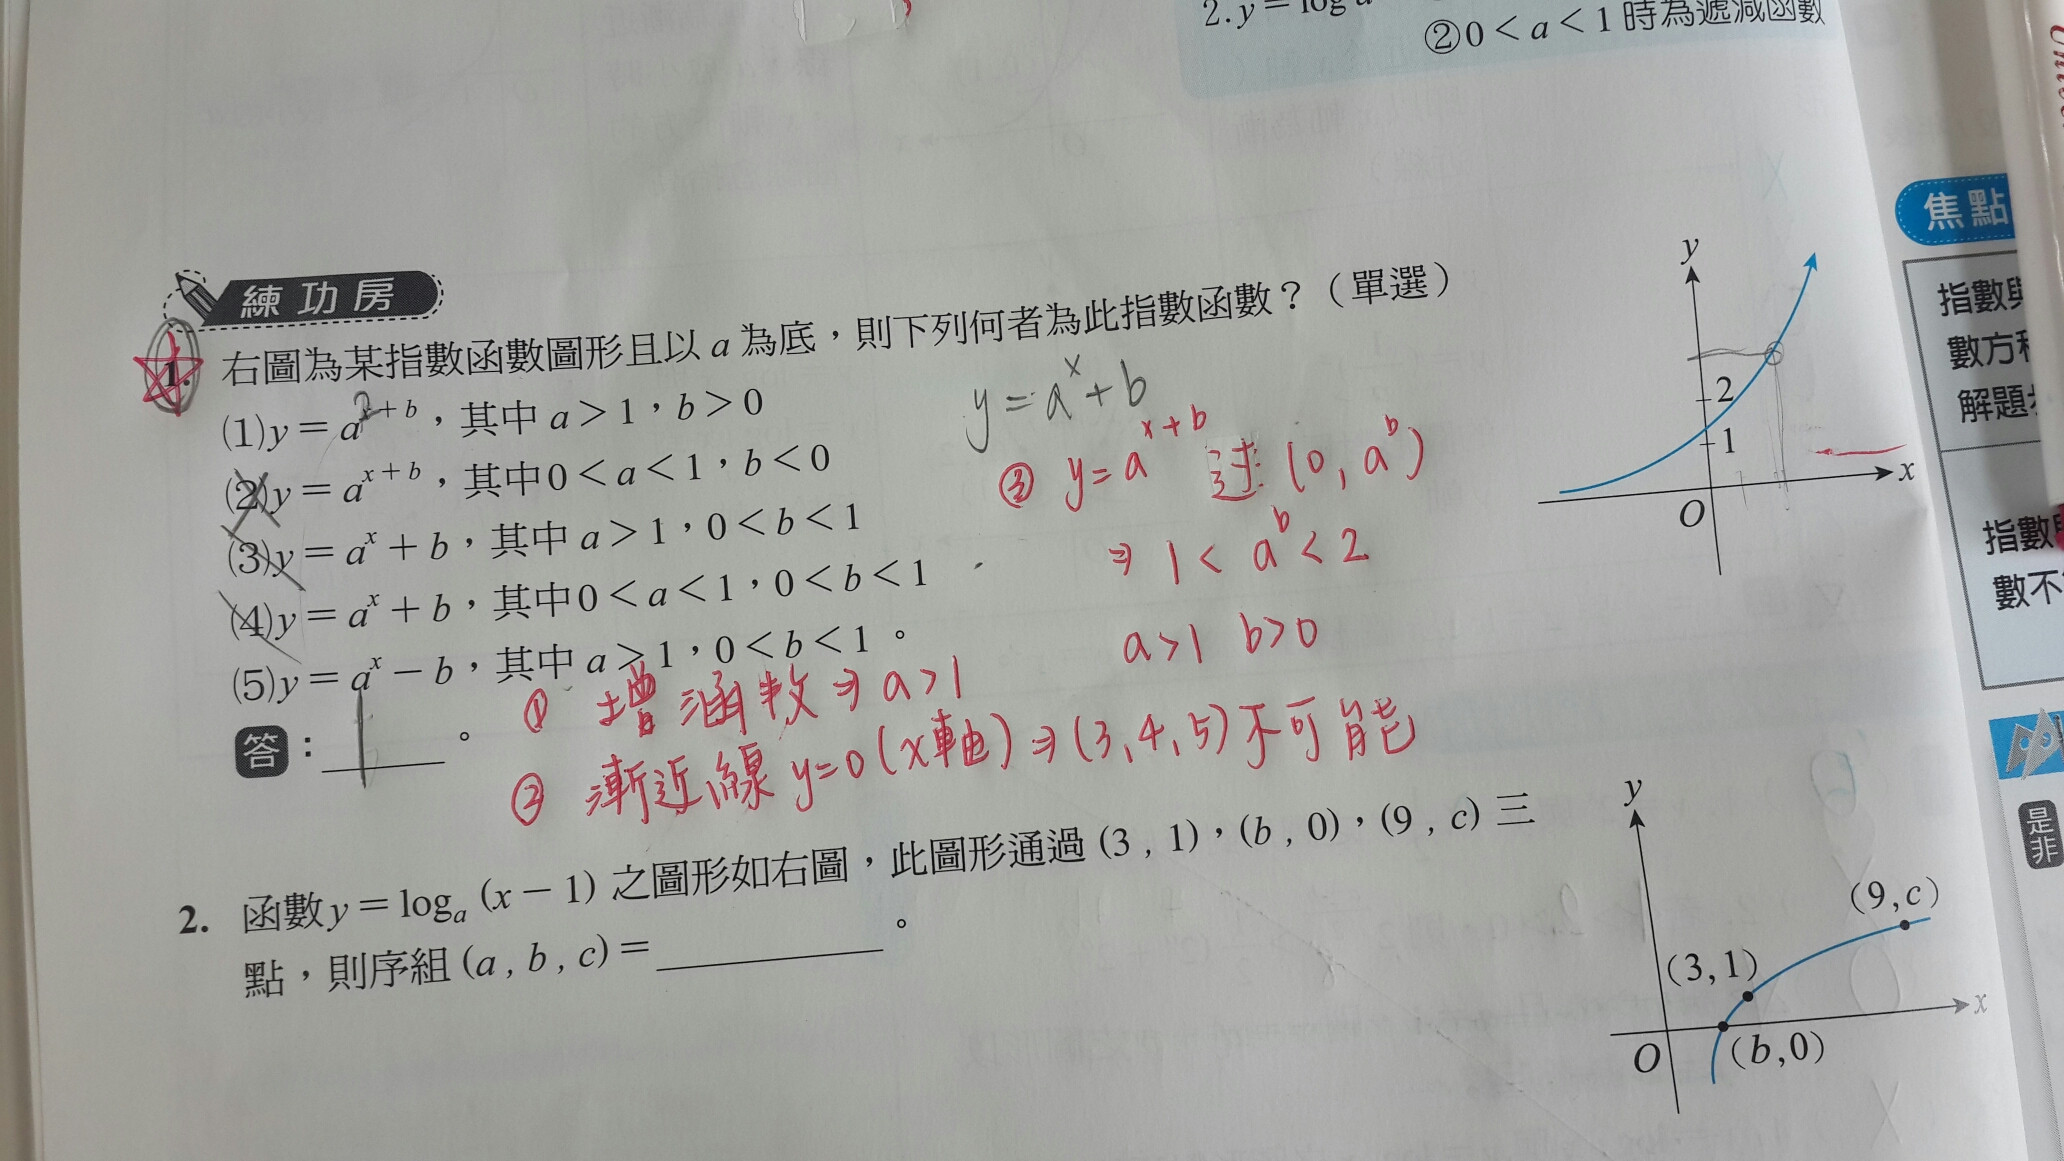 2. y = log
②0 < a < 1 時為遞減函數
焦點
指數與
數方
解題
指數與
數不
是非
練功房
1. 右圖為某指數函數圖形且以 a 為底，則下列何者為此指數函數？（單選）
(1)y = a^{x+b}，其中 a > 1，b > 0
(2)y = a^{x+b}，其中0 < a < 1，b < 0
(3)y = a^x + b，其中 a > 1，0 < b < 1
(4)y = a^x + b，其中0 < a < 1，0 < b < 1
(5)y = a^x − b，其中 a > 1，0 < b < 1。
答：1。
y = a^x + b
③ y = a^{x+b} 过 (0, a^b)
⇒ 1 < a^b < 2
a > 1 b > 0
① 增涵数 ⇒ a > 1
② 漸近線 y=0 (x軸) ⇒ (3,4,5) 不可能
y
2
1
O
x
2. 函數 y = log_a (x − 1) 之圖形如右圖，此圖形通過 (3 , 1)，(b , 0)，(9 , c) 三
點，則序組 (a , b , c) =
。
y
(9,c)
(3,1)
x
O
(b,0)